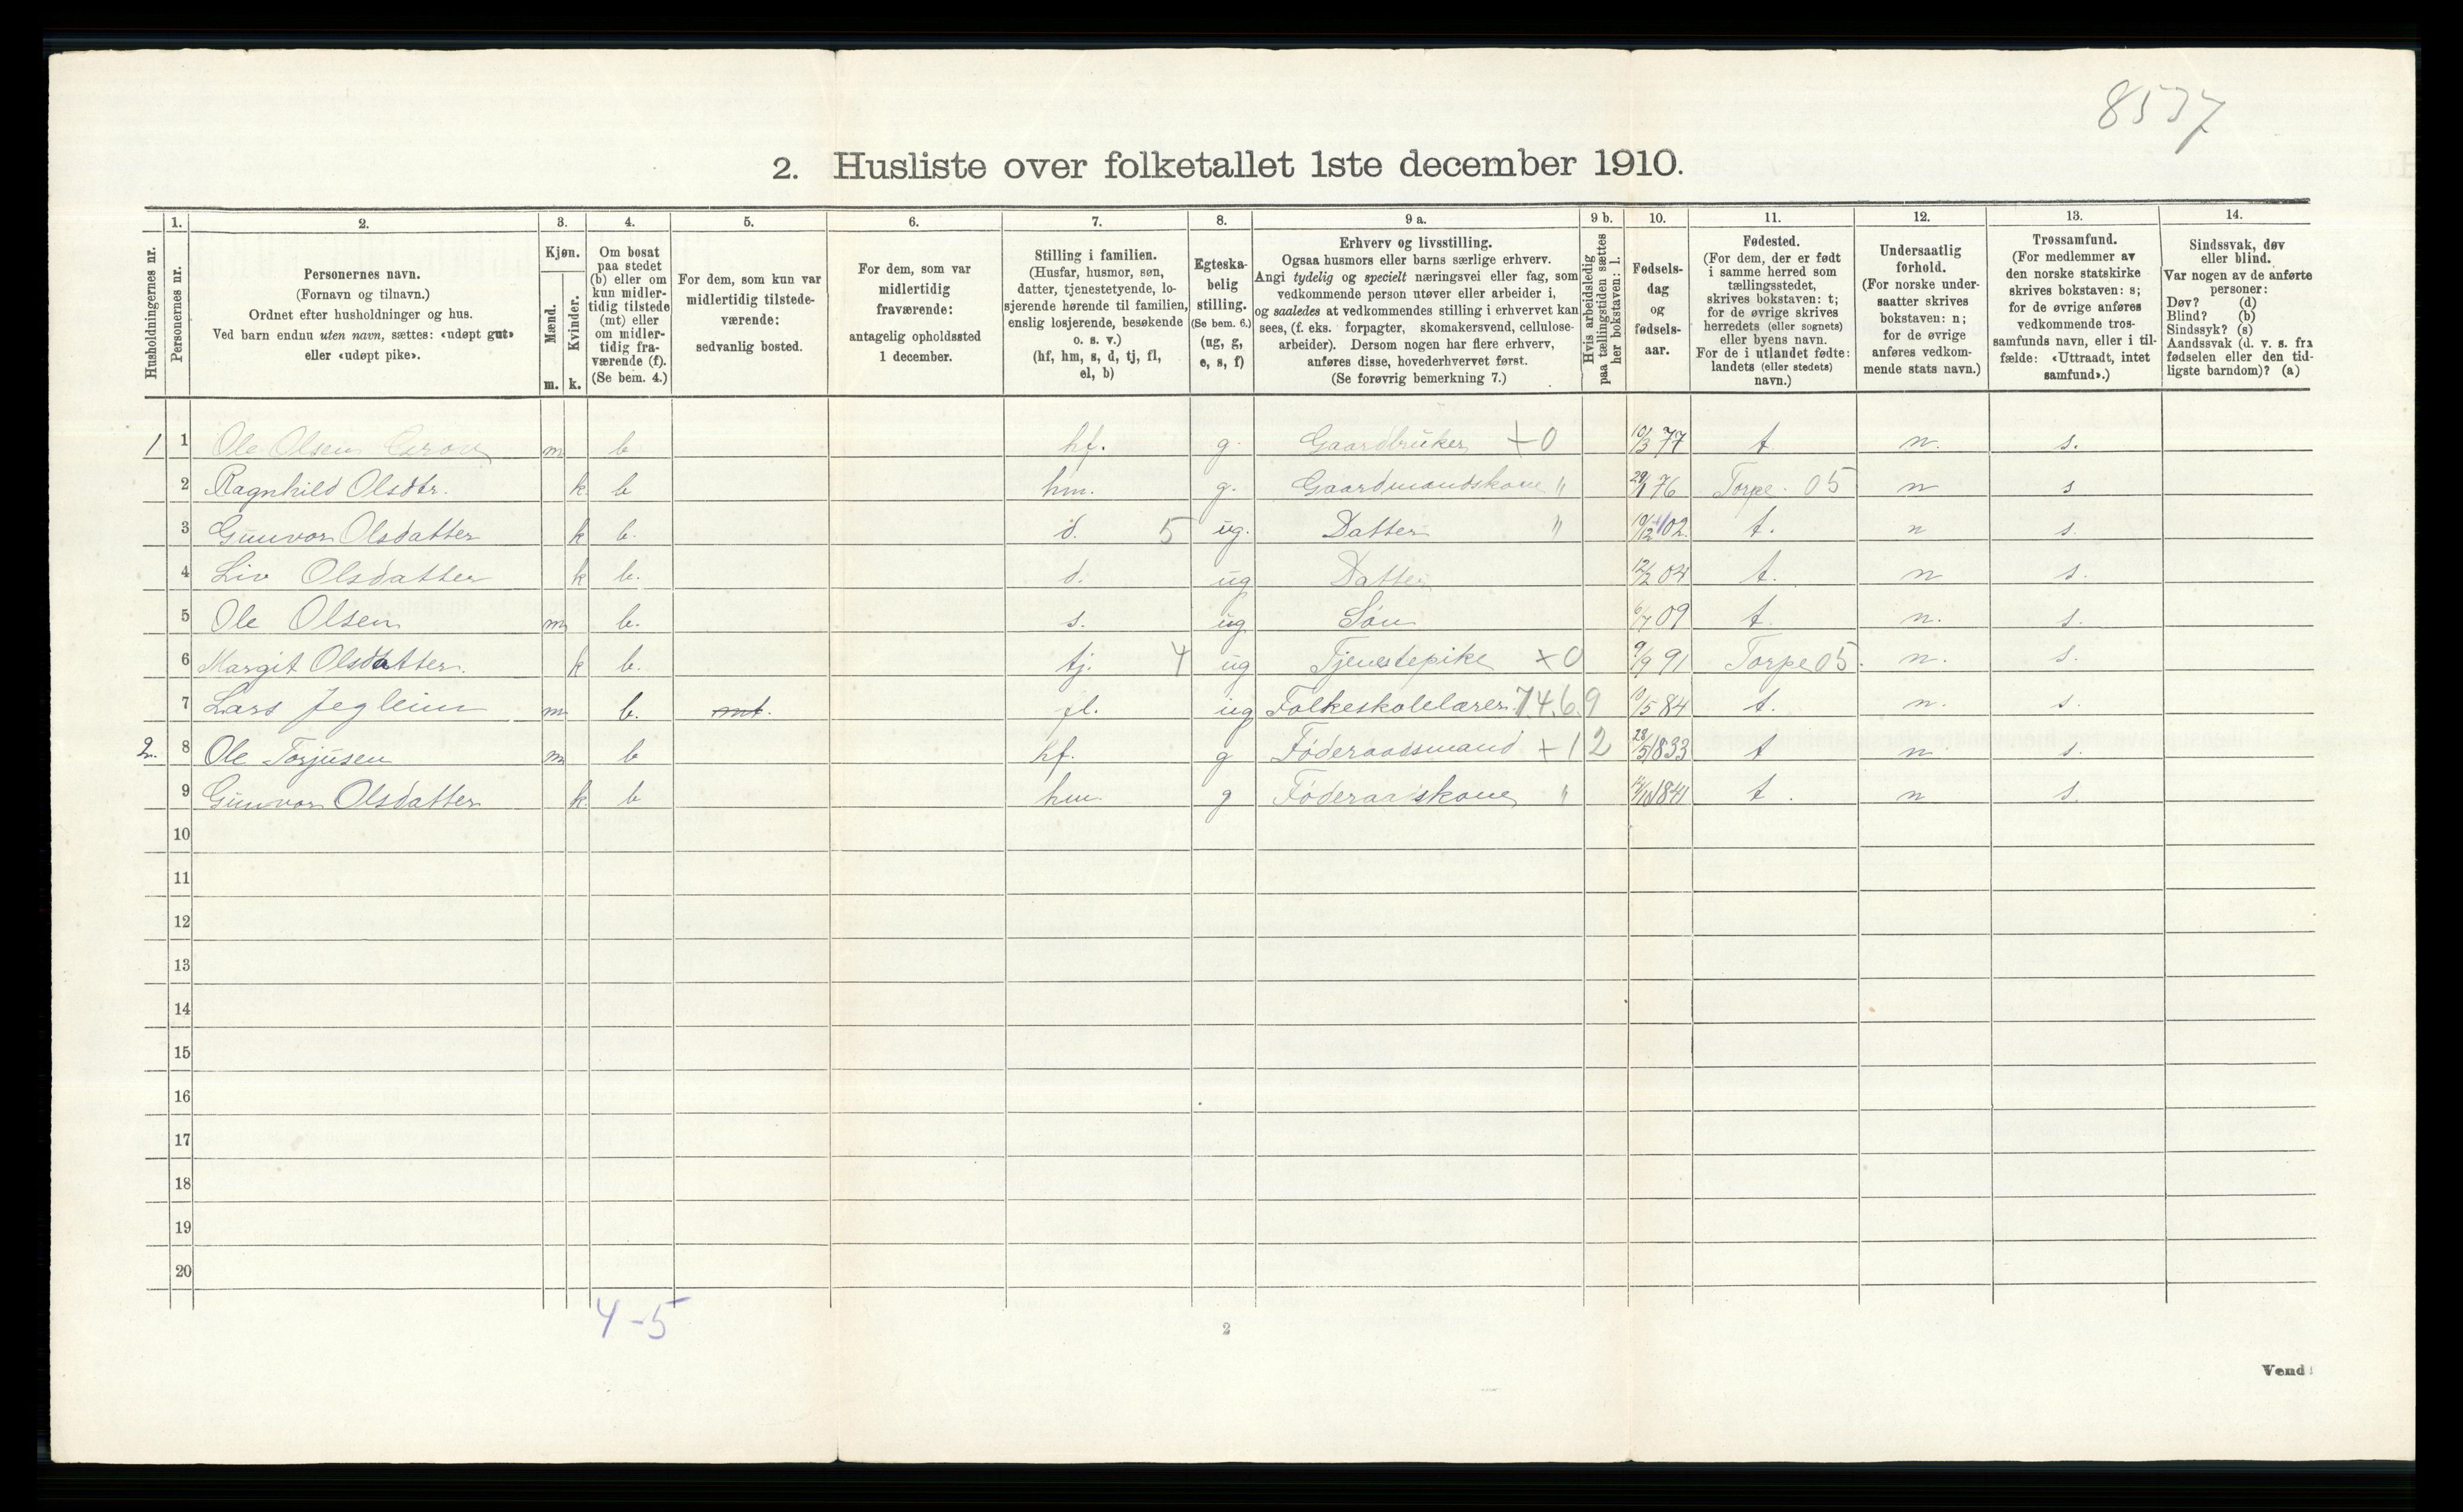 8537
2. Husliste over folketallet 1ste december 1910.
Husholdningernes nr.
1. Personernes nr.
2. Personernes navn. (Fornavn og tilnavn.) Ordnet efter husholdninger og hus. Ved barn endnu uten navn, sættes: «udøpt gut» eller «udøpt pike».
3. Kjøn. Mænd. m. Kvinder. k.
4. Om bosat paa stedet (b) eller om kun midlertidig tilstede (mt) eller om midlertidig fraværende (f). (Se bem. 4.)
5. For dem, som kun var midlertidig tilstedeværende: sedvanlig bosted.
6. For dem, som var midlertidig fraværende: antagelig opholdssted 1 december.
7. Stilling i familien. (Husfar, husmor, søn, datter, tjenestetyende, losjerende hørende til familien, enslig losjerende, besøkende o. s. v.) (hf, hm, s, d, tj, fl, el, b)
8. Egteskabelig stilling. (Se bem. 6.) (ug, g, e, s, f)
9 a. Erhverv og livsstilling. Ogsaa husmors eller barns særlige erhverv. Angi tydelig og specielt næringsvei eller fag, som vedkommende person utøver eller arbeider i, og saaledes at vedkommendes stilling i erhvervet kan sees, (f. eks. forpagter, skomakersvend, cellulosearbeider). Dersom nogen har flere erhverv, anføres disse, hovederhvervet først. (Se forøvrig bemerkning 7.)
9 b. Hvis arbeidsledig paa tællingstiden sættes her bokstaven: l.
10. Fødselsdag og fødselsaar.
11. Fødested. (For dem, der er født i samme herred som tællingsstedet, skrives bokstaven: t; for de øvrige skrives herredets (eller sognets) eller byens navn. For de i utlandet fødte: landets (eller stedets) navn.)
12. Undersaatlig forhold. (For norske undersaatter skrives bokstaven: n; for de øvrige anføres vedkommende stats navn.)
13. Trossamfund. (For medlemmer av den norske statskirke skrives bokstaven: s; for de øvrige anføres vedkommende trossamfunds navn, eller i tilfælde: «Uttraadt, intet samfund».)
14. Sindssvak, døv eller blind. Var nogen av de anførte personer: Døv? (d) Blind? (b) Sindssyk? (s) Aandssvak (d. v. s. fra fødselen eller den tidligste barndom)? (a)
1 1 Ole Olsen Grov m b hf. g. Gaardbruker +0 10/3 77 t n. s.
2 Ragnhild Olsdtr. k b hm. g. Gaardmandskone " 29/1 76 Torpe. 05 n s
3 Gunvor Olsdatter k b. d. 5 ug. Datter " 10/12 02 t. n s.
4 Liv Olsdatter k b. d. ug Datter 12/2 04 t. n s.
5 Ole Olsen m b. s. ug Søn 6/7 09 t. n. s.
6 Margit Olsdatter. k b. tj. 4 ug Tjenestepike ×0 9/9 91 Torpe 05. n. s.
7 Lars Jegleim m b. mt. fl. ug Folkeskolelærer 7.4.6.9 /5 84 t. n. s.
2. 8 Ole Torjusen m b hf. g Føderaadsmand +12 28/5 1833 t n s.
9 Gunvor Olsdatter k b hm g Føderaaskone " /10 1841 t. n s.
10
11
12
13
14
15
16
17
18
19
20
4-5
2
Vend